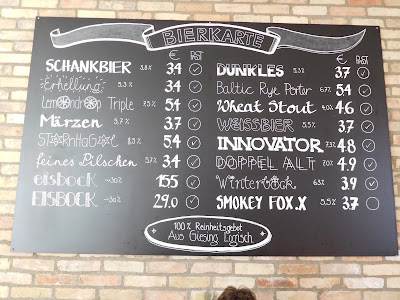 BIERKARTE
€
€
SCHANKBIER 3,8% 3.4
Erhellung 5,3% 3.4
Lemondrop Triple 7.5% 5.4
Märzen 5,7% 3.7
STERNHAGEL 8,5% 5.4
feines Pilschen 5.7% 3.4
eisbock ~30% 15.5
EISBOCK ~30% 29.0
DUNKLES 5.3% 3.7
Baltic Rye Porter 5.4
Wheat Stout 4.6
WEISSBIER 5,5% 3.7
INNOVATOR 4.8
DOPPEL ALT 4.9
Winterbock 3.9
SMOKEY FOX.X 5,5% 3.7
100% Reinheitsgebot
Aus Giesing Logisch